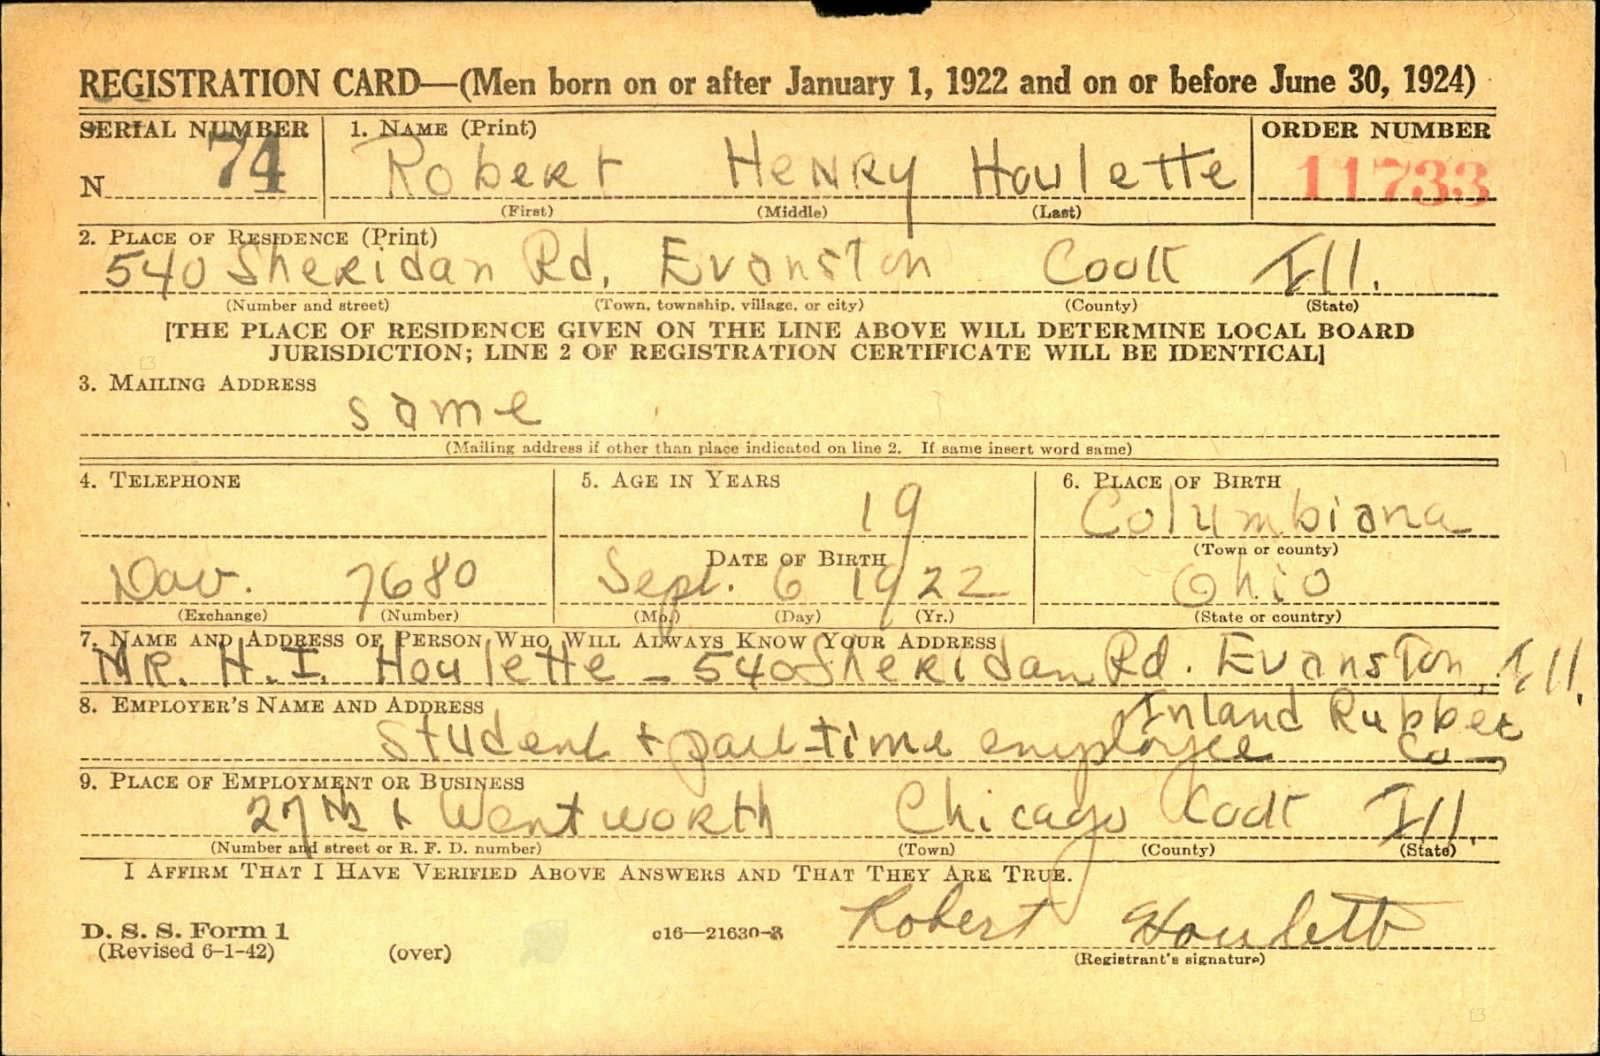 REGISTRATION CARD—(Men born on or after January 1, 1922 and on or before June 30, 1924)
SERIAL NUMBER 1. NAME (Print) ORDER NUMBER
N 74 Robert Henry Houlette 11733
(First) (Middle) (Last)
2. PLACE OF RESIDENCE (Print)
540 Sheridan Rd. Evanston Cook Ill.
(Number and street) (Town, township, village, or city) (County) (State)
[THE PLACE OF RESIDENCE GIVEN ON THE LINE ABOVE WILL DETERMINE LOCAL BOARD
JURISDICTION; LINE 2 OF REGISTRATION CERTIFICATE WILL BE IDENTICAL]
3. MAILING ADDRESS
same
(Mailing address if other than place indicated on line 2. If same insert word same)
4. TELEPHONE 5. AGE IN YEARS 6. PLACE OF BIRTH
19 Columbiana
DATE OF BIRTH (Town or county)
Dav. 7680 Sept. 6 1922 Ohio
(Exchange) (Number) (Mo.) (Day) (Yr.) (State or country)
7. NAME AND ADDRESS OF PERSON WHO WILL ALWAYS KNOW YOUR ADDRESS
MR. H. I. Houlette - 540 Sheridan Rd. Evanston, Ill.
8. EMPLOYER'S NAME AND ADDRESS Inland Rubber
Student + part-time employee Co
9. PLACE OF EMPLOYMENT OR BUSINESS
27th + Wentworth Chicago Cook Ill.
(Number and street or R. F. D. number) (Town) (County) (State)
I AFFIRM THAT I HAVE VERIFIED ABOVE ANSWERS AND THAT THEY ARE TRUE.
D. S. S. Form 1 c16—21630-2 Robert Houlette
(Revised 6-1-42) (over) (Registrant's signature)